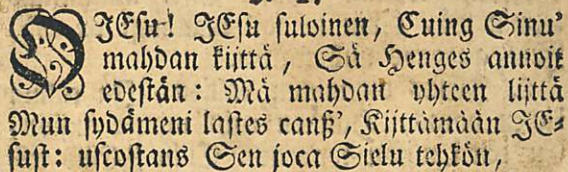 O JEsu! JEsu suloinen, Cuing Sinu'
mahdan kijttä, Sä Henges annoit
edestän: Mä mahdan yhteen lijttä
Mun sydämeni lastes canß', Kijttämään JE-
sust: uscostans Sen joca Sielu tehkön,